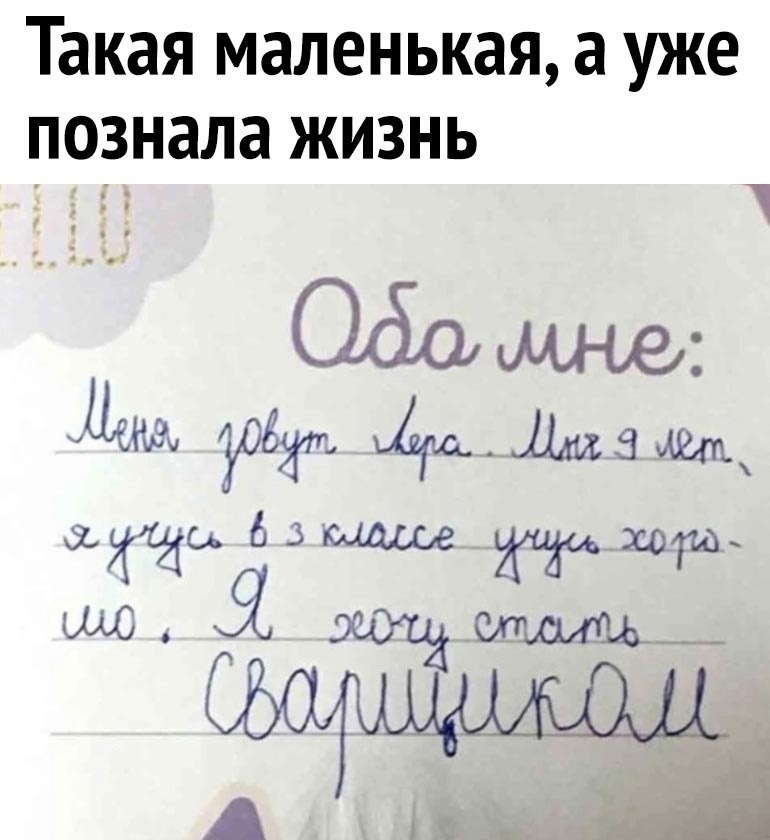 Такая маленькая, а уже
познала жизнь
ELLO
Обо мне:
Меня зовут Лера. Мне 9 лет,
я учусь в 3 классе учусь хоро-
шо. Я хочу стать
Сварщиком